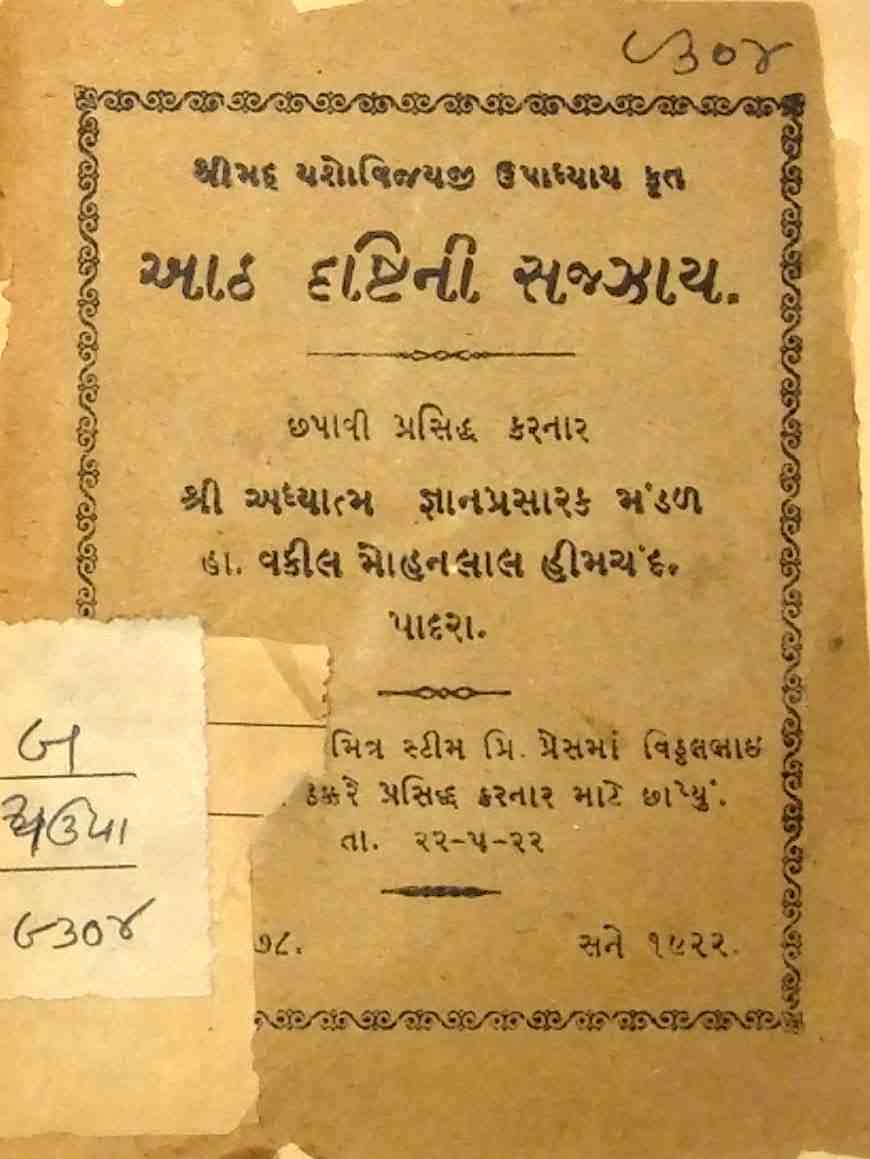 ૯૩૦૪
શ્રીમદ્ યશોવિજયજી ઉપાધ્યાય કૃત
આઠ દૃષ્ટિની સજ્ઝાય.
છપાવી પ્રસિદ્ધ કરનાર
શ્રી અધ્યાત્મ જ્ઞાનપ્રસારક મંડળ
હા. વકીલ મોહનલાલ હીમચંદ.
પાદરા.
મિત્ર સ્ટીમ પ્રિ. પ્રેસમાં વિઠ્ઠલભાઇ
ઠક્કરે પ્રસિદ્ધ કરનાર માટે છાપ્યું.
તા. ૨૨-૫-૨૨
૭૮. સને ૧૯૨૨.
૯૩૦૪